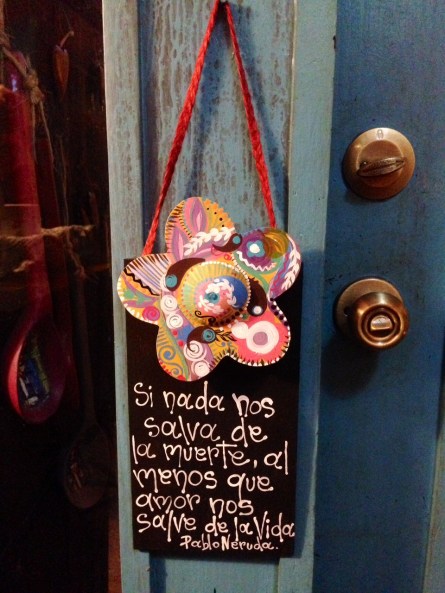 Si nada nos
salva de
la muerte, al
menos que
amor nos
salve de la Vida
Pablo Neruda.